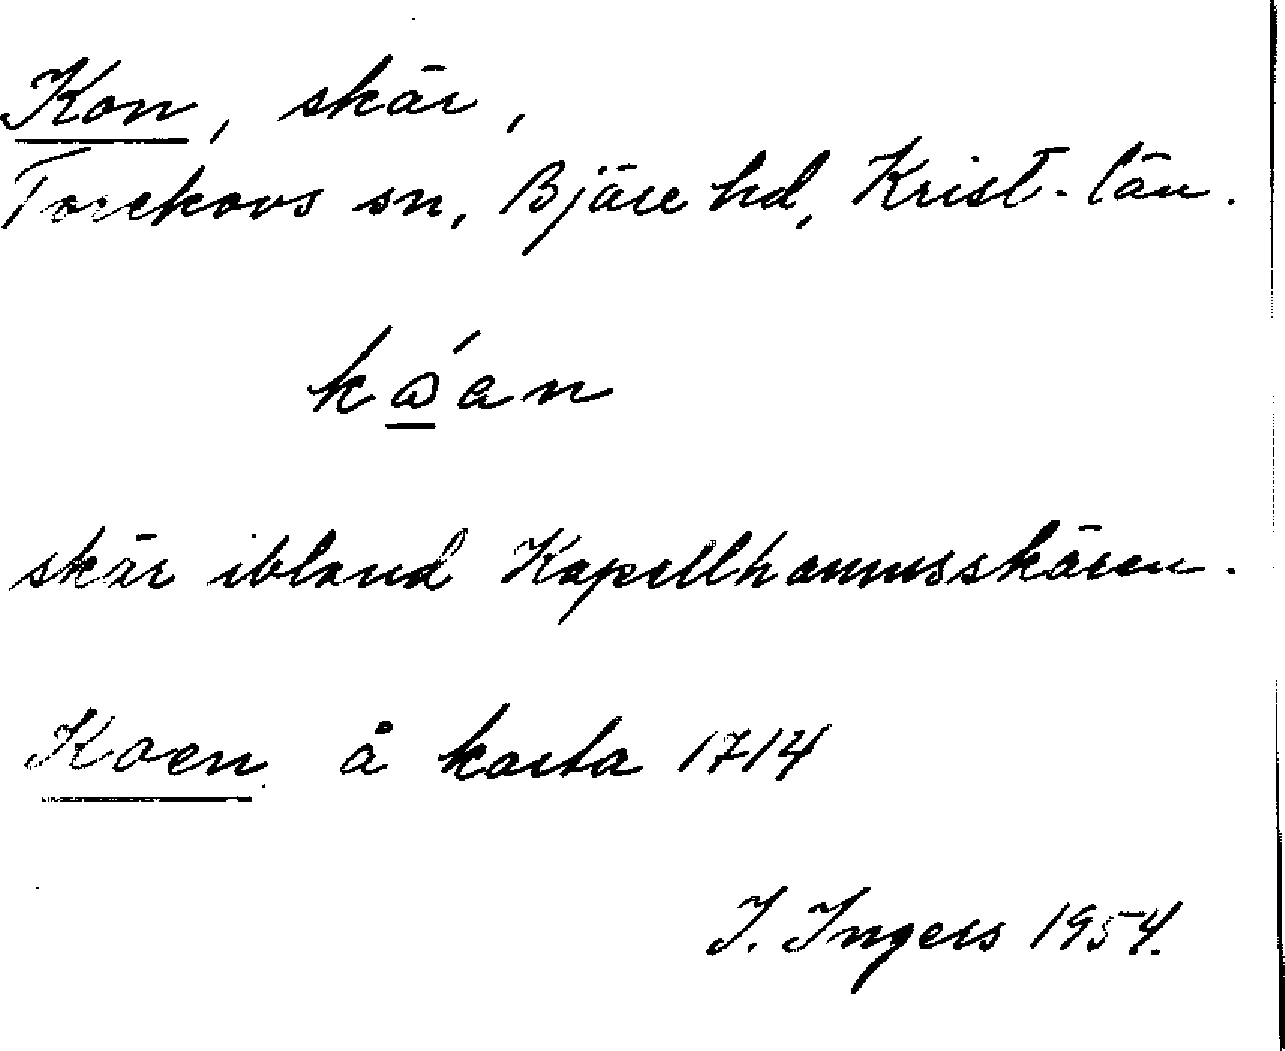 Kon, skär,
Torekovs sn, Bjäre hd, Krist-län.
kώan
skär ibland Kapellhamnsskären.
Koen å karta 1714
I. Ingers 1954.